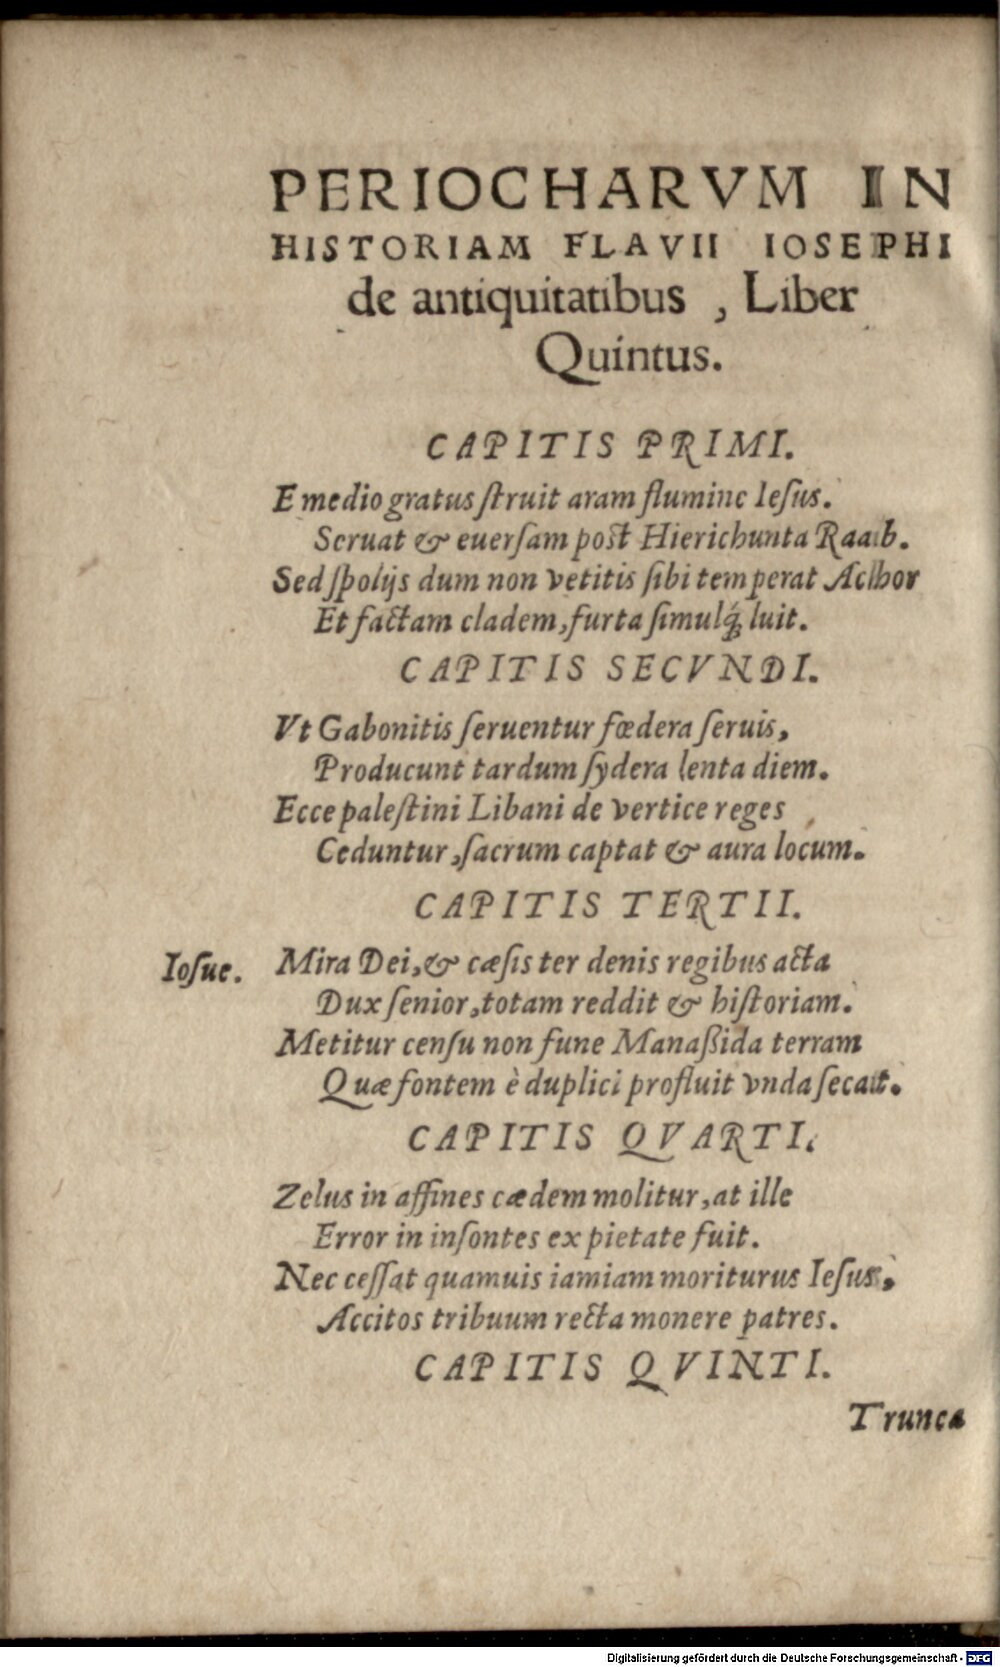 PERIOCHARVM IN
HISTORIAM FLAVII IOSEPHI
de antiquitatibus, Liber
Quintus.
CAPITIS PRIMI.
E medio gratus ſtruit aram flumine Ieſus.
Seruat & euerſam poſt Hierichunta Raab.
Sed ſpolijs dum non vetitis ſibi temperat Achor
Et factam cladem, furta ſimulq́; luit.
CAPITIS SECVNDI.
Vt Gabonitis ſeruentur fœdera ſeruis,
Producunt tardum ſydera lenta diem.
Ecce paleſtini Libani de vertice reges
Ceduntur, ſacrum captat & aura locum.
CAPITIS TERTII.
Ioſue. Mira Dei, & cæſis ter denis regibus acta
Dux ſenior, totam reddit & hiſtoriam.
Metitur cenſu non fune Manaßida terram
Quæ fontem è duplici profluit vnda ſecat.
CAPITIS QVARTI.
Zelus in affines cædem molitur, at ille
Error in inſontes ex pietate fuit.
Nec ceſſat quamuis iamiam moriturus Ieſus,
Accitos tribuum recta monere patres.
CAPITIS QVINTI.
Trunca
Digitalisierung gefördert durch die Deutsche Forschungsgemeinschaft - DFG